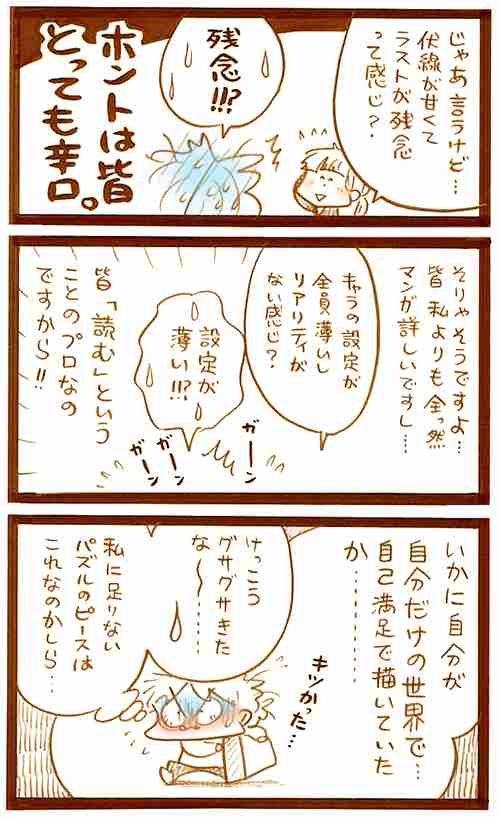 じゃあ言うけど…
伏線が甘くて
ラストが残念
って感じ?
残念!!?
ホントは皆
とっても辛口。
そりゃそうですよ…
皆私よりも全っ然
マンガ詳しいですし…
キャラの設定が
全員薄いし
リアリティが
ない感じ?
設定が
薄い!!?
ガーン
ガーン
ガーン
皆「読む」という
ことのプロなの
ですから!!
いかに自分が
自分だけの世界で…
自己満足で描いていた
か…………
けっこう
グサグサきた
な〜………
キツかった…
私に足りない
パズルのピースは
これなのかしら…